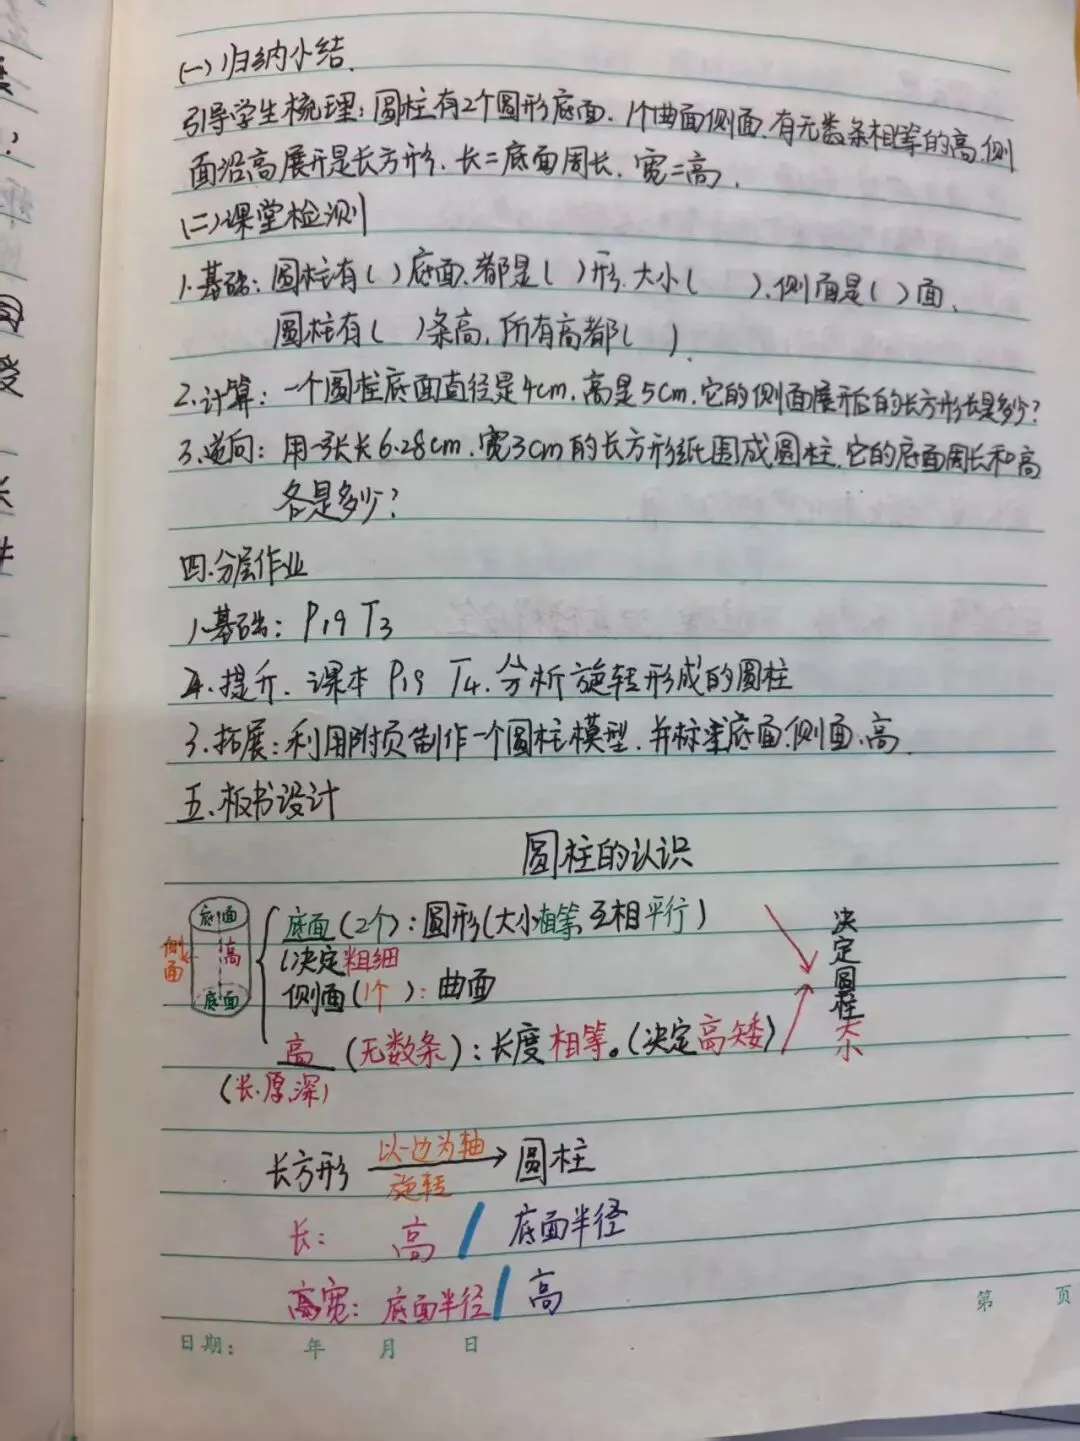 (一)归纳小结.
引导学生梳理:圆柱有2个圆形底面.1个曲面侧面.有无数条相等的高.侧
面沿高展开是长方形.长=底面周长.宽=高.
(二)课堂检测
1.基础:圆柱有( )底面.都是( )形.大小( ).侧面是( )面.
圆柱有( )条高.所有高都( ).
2.计算:一个圆柱底面直径是4cm.高是5cm.它的侧面展开后的长方形长是多少?
3.逆向:用一张长6.28cm.宽3cm的长方形纸围成圆柱.它的底面周长和高
各是多少?
四.分层作业
1.基础:P19 T3
2.提升.课本 P19 T4.分析旋转形成的圆柱
3.拓展:利用附页制作一个圆柱模型.并标注底面.侧面.高.
五.板书设计
圆柱的认识
底面
侧面
高
底面
底面(2个):圆形(大小相等 互相平行)
(决定粗细
侧面(1个):曲面
高(无数条):长度相等。(决定高矮)
(长.厚.深)
决定圆柱大小
长方形 以一边为轴 旋转 圆柱
长: 高 / 底面半径
宽: 底面半径 / 高
第 页
日期: 年 月 日